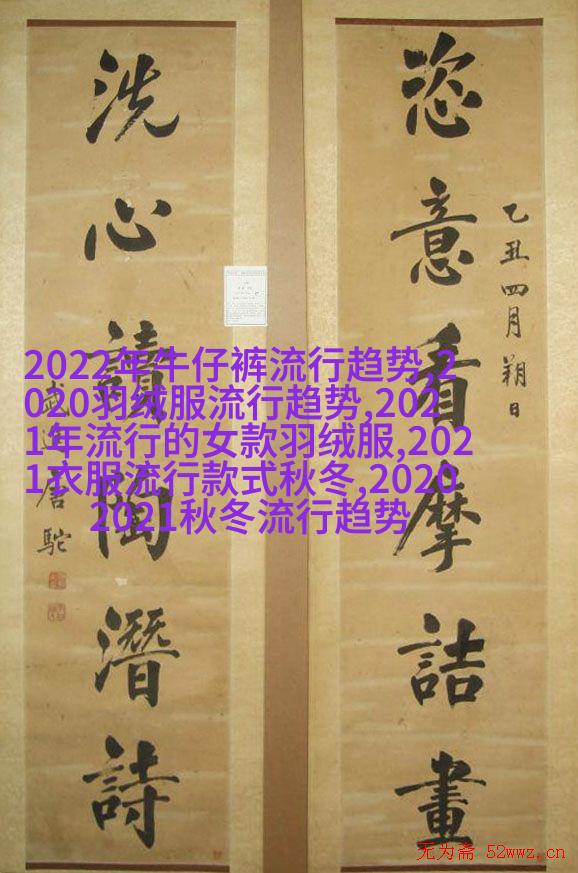 恣意看摩詰畫
乙丑四月朔日
洗心讀陶潛詩
武進唐駝
2022年牛仔裤流行趋势,2
020羽绒服流行趋势,202
1年流行的女款羽绒服,202
1衣服流行款式秋冬,2020
2021秋冬流行趋势
无为斋 52wwz.cn